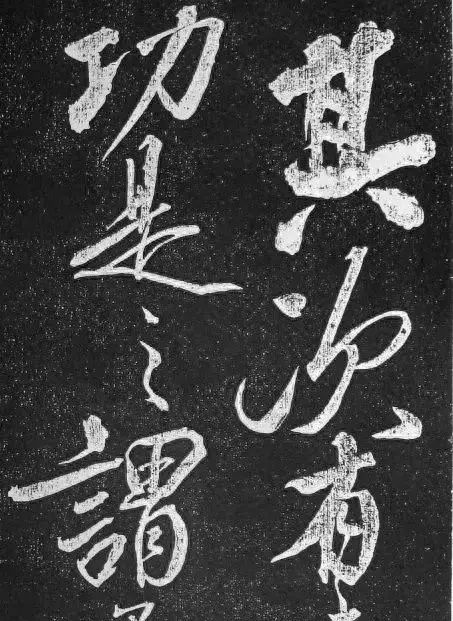 其次有
功是之謂